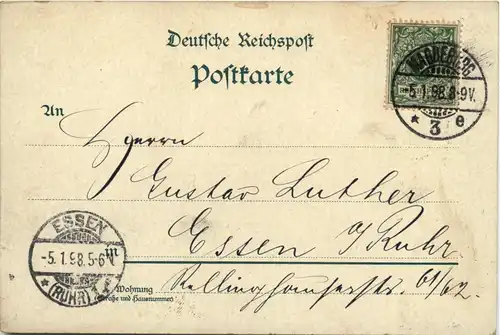 Deutsche Reichspost
Postkarte
MAGDEBURG
-5.1.98.8-9V.
* 3 e
An
Herrn
Gustav Luther
Essen a/Ruhr
Rellinghauserstr. 61/62.
Wohnung
(Straße und Hausnummer)
ESSEN
-5.1.98.5-6N
* (RUHR) 1 f